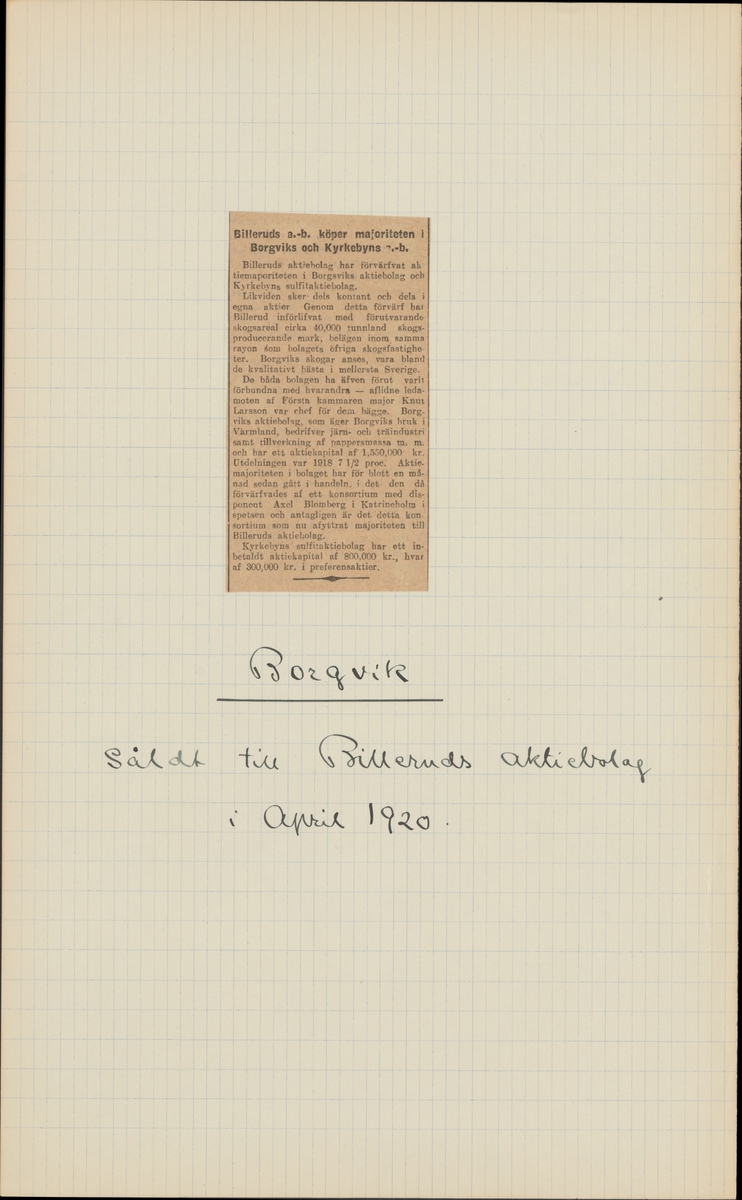 Billeruds a.-b. köper majoriteten i
Borgviks och Kyrkebyns a.-b.
Billeruds aktiebolag har förvärfvat ak
tiemaporiteten i Borgsviks aktiebolag och
Kyrkebyns sulfitaktiebolag.
Likviden sker dels kontant och dels i
egna aktier Genom detta förvärf har
Billerud införlifvat med förutvarande
skogsareal cirka 40,000 tunnland skogs-
producerande mark, belägen inom samma
rayon som bolagets öfriga skogsfastighe-
ter. Borgviks skogar anses, vara bland
de kvalitativt bästa i mellersta Sverige.
De båda bolagen ha äfven förut varit
förbundna med hvarandra — aflidne leda-
moten af Första kammaren major Knut
Larsson var chef för dem bägge. Borg-
viks aktiebolag, som äger Borgviks bruk i
Värmland, bedrifver järn- och träindustri
samt tillverkning af pappersmassa m. m.
och har ett aktiekapital af 1,550,000 kr.
Utdelningen var 1918 7 1/2 proc. Aktie-
majoriteten i bolaget har för blott en må-
nad sedan gått i handeln, i det den då
förvärfvades af ett konsortium med dis-
ponent Axel Blomberg i Katrineholm i
spetsen och antagligen är det detta kon-
sortium som nu afyttrat majoriteten till
Billeruds aktiebolag.
Kyrkebyns sulfitaktiebolag har ett in-
betaldt aktiekapital af 800,000 kr., hvar
af 300,000 kr. i preferensaktier.
Borgvik
Såldt till Billeruds aktiebolag
i April 1920.